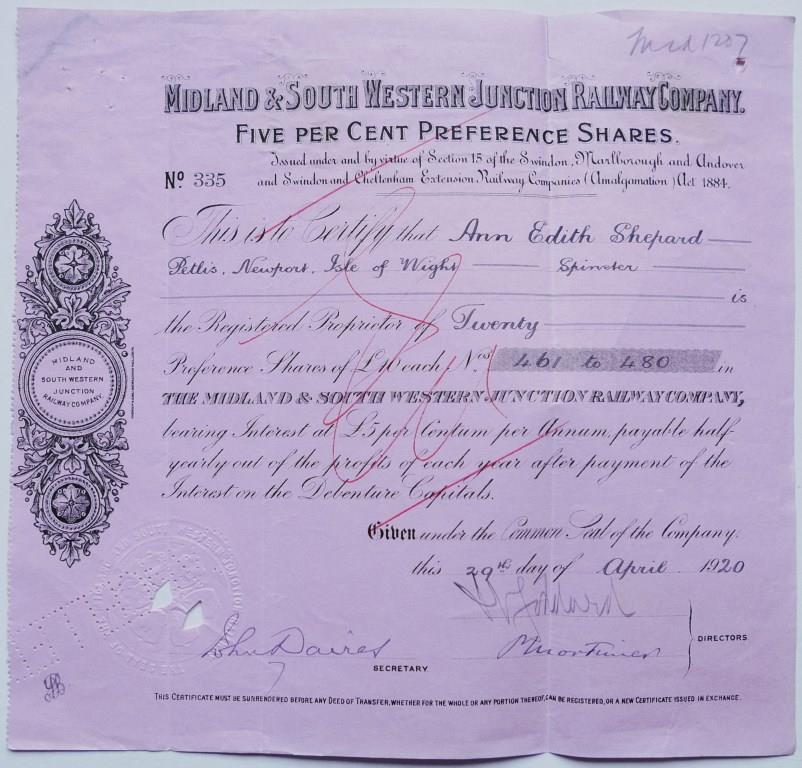 Mid 1207
MIDLAND & SOUTH WESTERN JUNCTION RAILWAY COMPANY.
FIVE PER CENT PREFERENCE SHARES.
Issued under and by virtue of Section 15 of the Swindon, Marlborough and Andover
No 335 and Swindon and Cheltenham Extension Railway Companies (Amalgamation) Act 1884.
This is to Certify that Ann Edith Shepard
Petlis, Newport, Isle of Wight Spinster
is
the Registered Proprietor of Twenty
Preference Shares of £10 each, Nos 461 to 480 in
THE MIDLAND & SOUTH WESTERN JUNCTION RAILWAY COMPANY,
bearing Interest at £5 per Centum per Annum, payable half-
yearly out of the profits of each year after payment of the
Interest on the Debenture Capitals.
MIDLAND
AND
SOUTH WESTERN
JUNCTION
RAILWAY COMPANY.
Given under the Common Seal of the Company.
this 29th day of April 1920
John Davies
P Mortimer
DIRECTORS
SECRETARY.
THIS CERTIFICATE MUST BE SURRENDERED BEFORE ANY DEED OF TRANSFER, WHETHER FOR THE WHOLE OR ANY PORTION THEREOF, CAN BE REGISTERED, OR A NEW CERTIFICATE ISSUED IN EXCHANGE.